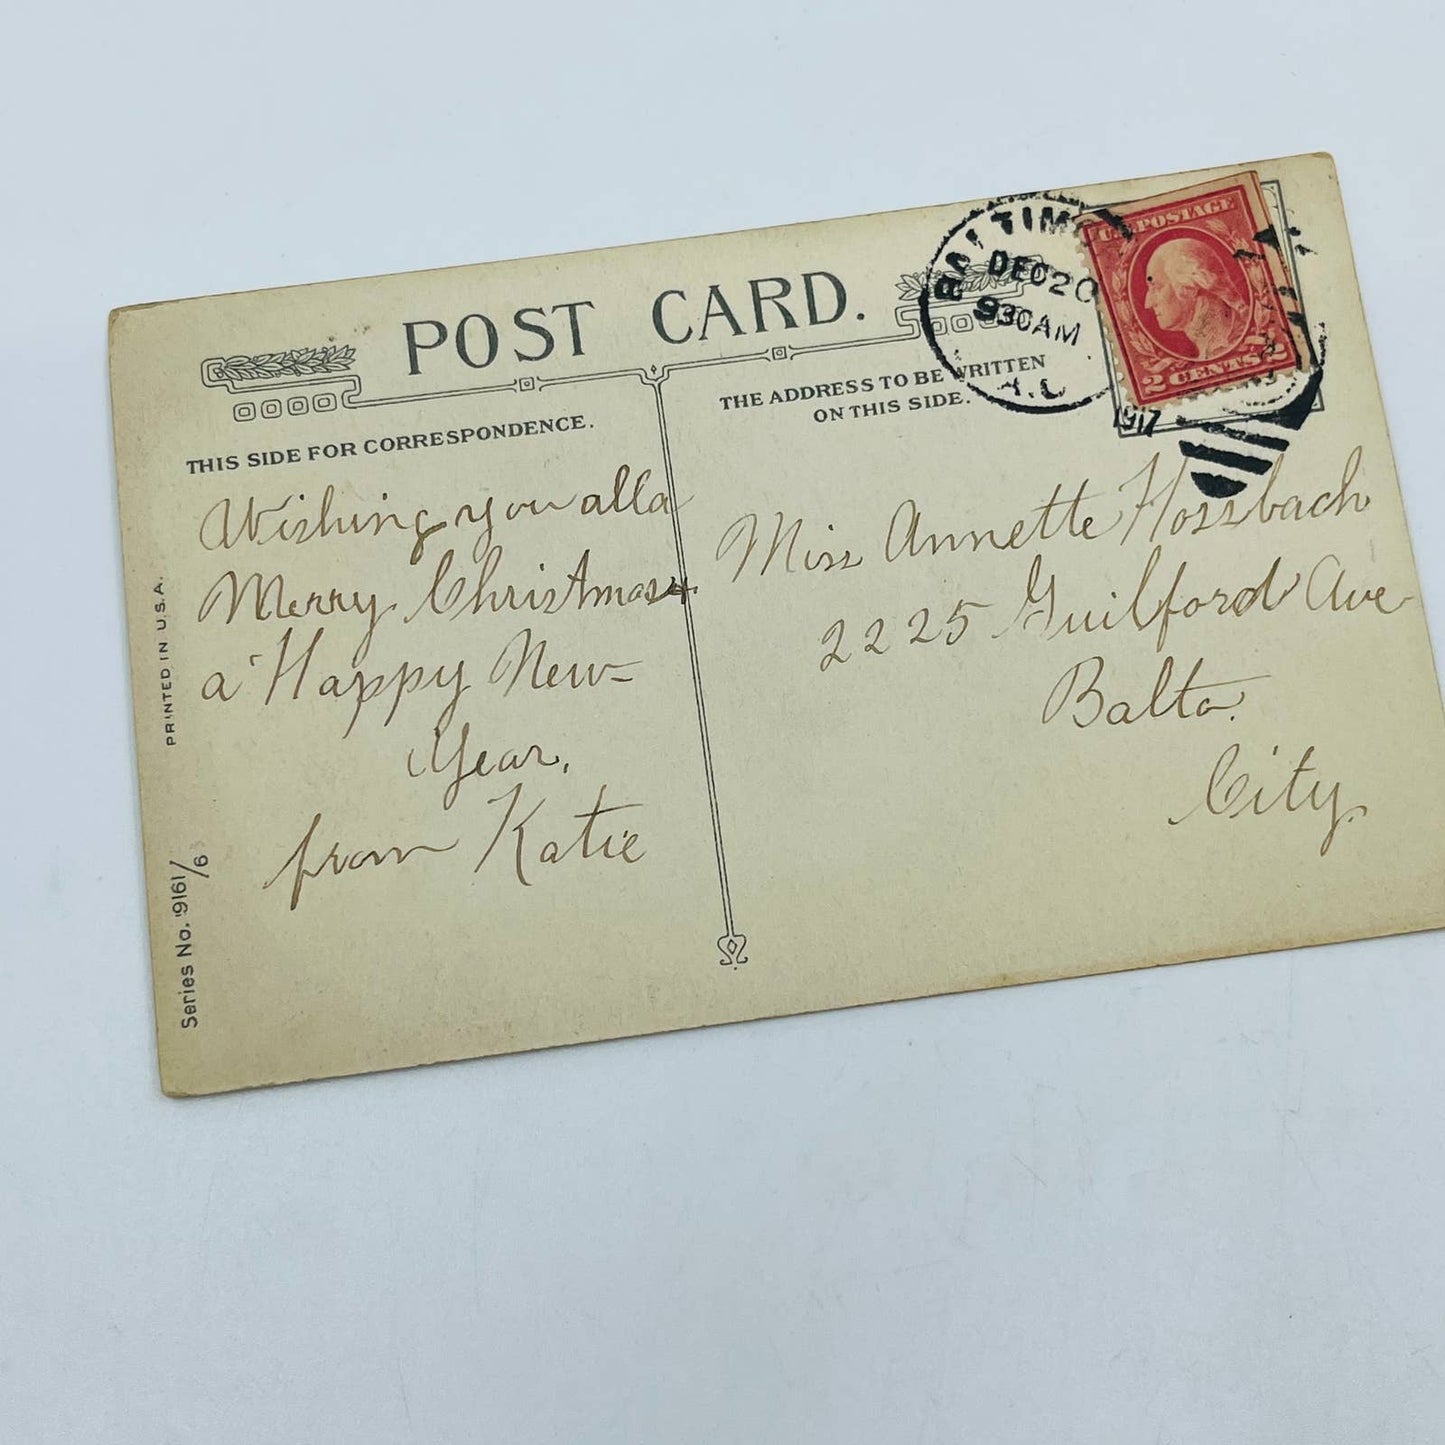 POST CARD.
THIS SIDE FOR CORRESPONDENCE.
THE ADDRESS TO BE WRITTEN
ON THIS SIDE.
BALTIMO
DEC 20
930 AM
1917
U.S. POSTAGE
2 CENTS 2
Wishing you all a
Merry Christmas +
a Happy New-
Year.
from Katie
Miss Annette Hossbach
2225 Guilford Ave
Balto.
City.
PRINTED IN U.S.A.
Series No. 9161/6